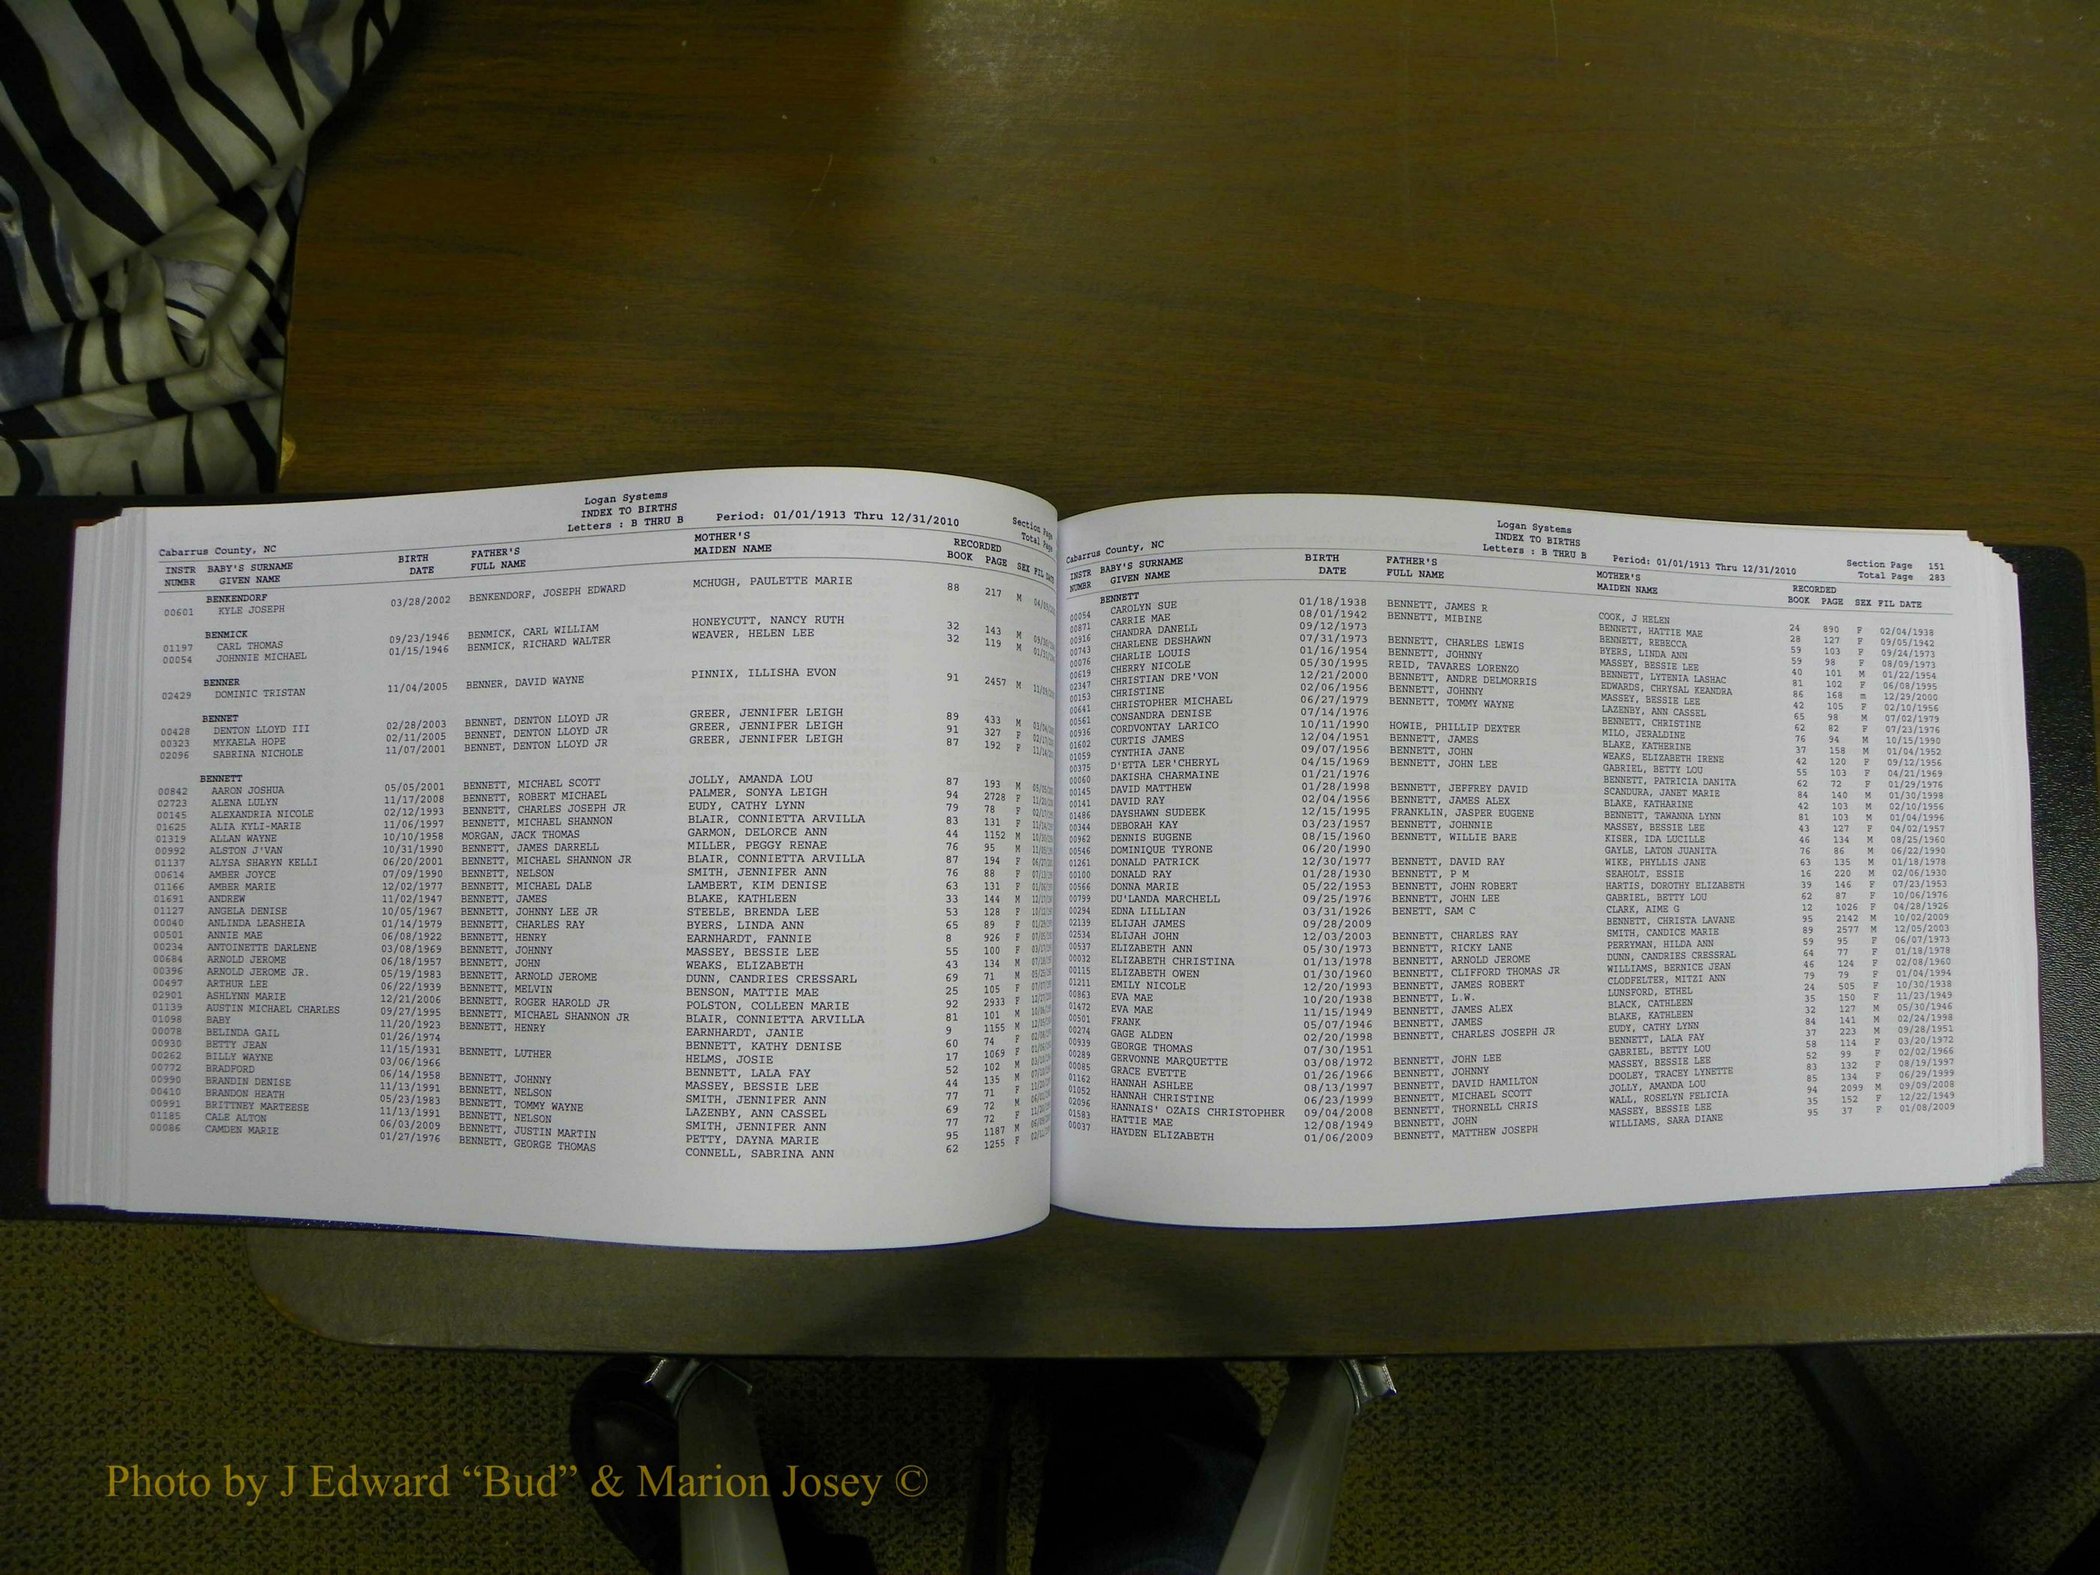 Logan Systems
INDEX TO BIRTHS
Letters : B THRU B Period: 01/01/1913 Thru 12/31/2010 Section Page
Total Page
Cabarrus County, NC
INSTR BABY'S SURNAME BIRTH FATHER'S MOTHER'S RECORDED
NUMBR GIVEN NAME DATE FULL NAME MAIDEN NAME BOOK PAGE SEX FIL DATE
BENKENDORF
00601 KYLE JOSEPH 03/28/2002 BENKENDORF, JOSEPH EDWARD MCHUGH, PAULETTE MARIE 88 217 M
BENMICK
01197 CARL THOMAS 09/23/1946 BENMICK, CARL WILLIAM HONEYCUTT, NANCY RUTH 32 143 M
00054 JOHNNIE MICHAEL 01/15/1946 BENMICK, RICHARD WALTER WEAVER, HELEN LEE 32 119 M
BENNER
02429 DOMINIC TRISTAN 11/04/2005 BENNER, DAVID WAYNE PINNIX, ILLISHA EVON 91 2457 M
BENNET
00428 DENTON LLOYD III 02/28/2003 BENNET, DENTON LLOYD JR GREER, JENNIFER LEIGH 89 433 M
00323 MYKAELA HOPE 02/11/2005 BENNET, DENTON LLOYD JR GREER, JENNIFER LEIGH 91 327 F
02096 SABRINA NICHOLE 11/07/2001 BENNET, DENTON LLOYD JR GREER, JENNIFER LEIGH 87 192 F
BENNETT
00842 AARON JOSHUA 05/05/2001 BENNETT, MICHAEL SCOTT JOLLY, AMANDA LOU 87 193 M
02723 ALENA LULYN 11/17/2008 BENNETT, ROBERT MICHAEL PALMER, SONYA LEIGH 94 2728 F
00145 ALEXANDRIA NICOLE 02/12/1993 BENNETT, CHARLES JOSEPH JR EUDY, CATHY LYNN 79 78 F
01625 ALIA KYLI-MARIE 11/06/1997 BENNETT, MICHAEL SHANNON BLAIR, CONNIETTA ARVILLA 83 131 F
01319 ALLAN WAYNE 10/10/1958 MORGAN, JACK THOMAS GARMON, DELORCE ANN 44 1152 M
00992 ALSTON J'VAN 10/31/1990 BENNETT, JAMES DARRELL MILLER, PEGGY RENAE 76 95 M
01137 ALYSA SHARYN KELLI 06/20/2001 BENNETT, MICHAEL SHANNON JR BLAIR, CONNIETTA ARVILLA 87 194 F
00614 AMBER JOYCE 07/09/1990 BENNETT, NELSON SMITH, JENNIFER ANN 76 88 F
01166 AMBER MARIE 12/02/1977 BENNETT, MICHAEL DALE LAMBERT, KIM DENISE 63 131 F
01691 ANDREW 11/02/1947 BENNETT, JAMES BLAKE, KATHLEEN 33 144 M
01127 ANGELA DENISE 10/05/1967 BENNETT, JOHNNY LEE JR STEELE, BRENDA LEE 53 128 F
00040 ANLINDA LEASHEIA 01/14/1979 BENNETT, CHARLES RAY BYERS, LINDA ANN 65 89 F
00501 ANNIE MAE 06/08/1922 BENNETT, HENRY EARNHARDT, FANNIE 8 926 F
00234 ANTOINETTE DARLENE 03/08/1969 BENNETT, JOHNNY MASSEY, BESSIE LEE 55 100 F
00684 ARNOLD JEROME 06/18/1957 BENNETT, JOHN WEAKS, ELIZABETH 43 134 M
00396 ARNOLD JEROME JR. 05/19/1983 BENNETT, ARNOLD JEROME DUNN, CANDRIES CRESSARL 69 71 M
00497 ARTHUR LEE 06/22/1939 BENNETT, MELVIN BENSON, MATTIE MAE 25 105
02901 ASHLYNN MARIE 12/21/2006 BENNETT, ROGER HAROLD JR POLSTON, COLLEEN MARIE 92 2933 F
01139 AUSTIN MICHAEL CHARLES 09/27/1995 BENNETT, MICHAEL SHANNON JR BLAIR, CONNIETTA ARVILLA 81 101 M
01098 BABY 11/20/1923 BENNETT, HENRY EARNHARDT, JANIE 9 1155 M
00078 BELINDA GAIL 01/26/1974 BENNETT, KATHY DENISE 60 74 F
00930 BETTY JEAN 11/15/1931 BENNETT, LUTHER HELMS, JOSIE 17 1069 F
00262 BILLY WAYNE 03/06/1966 BENNETT, LALA FAY 52 102 M
00772 BRADFORD 06/14/1958 BENNETT, JOHNNY MASSEY, BESSIE LEE 44 135 M
00990 BRANDIN DENISE 11/13/1991 BENNETT, NELSON SMITH, JENNIFER ANN 77 71 F
00410 BRANDON HEATH 05/23/1983 BENNETT, TOMMY WAYNE LAZENBY, ANN CASSEL 69 72 M
00991 BRITTNEY MARTEESE 11/13/1991 BENNETT, NELSON SMITH, JENNIFER ANN 77 72 F
01185 CALE ALTON 06/03/2009 BENNETT, JUSTIN MARTIN PETTY, DAYNA MARIE 95 1187 M
00086 CAMDEN MARIE 01/27/1976 BENNETT, GEORGE THOMAS CONNELL, SABRINA ANN 62 1255 F
Logan Systems
INDEX TO BIRTHS
Letters : B THRU B Period: 01/01/1913 Thru 12/31/2010 Section Page 151
Total Page 283
Cabarrus County, NC
INSTR BABY'S SURNAME BIRTH FATHER'S MOTHER'S RECORDED
NUMBR GIVEN NAME DATE FULL NAME MAIDEN NAME BOOK PAGE SEX FIL DATE
BENNETT
00054 CAROLYN SUE 01/18/1938 BENNETT, JAMES R COOK, J HELEN 24 890 F 02/04/1938
00871 CARRIE MAE 08/01/1942 BENNETT, MIBINE BENNETT, HATTIE MAE 28 127 F 09/05/1942
00916 CHANDRA DANELL 09/12/1973 BENNETT, REBECCA 59 103 F 09/24/1973
00743 CHARLENE DESHAWN 07/31/1973 BENNETT, CHARLES LEWIS BYERS, LINDA ANN 59 98 F 08/09/1973
00076 CHARLIE LOUIS 01/16/1954 BENNETT, JOHNNY MASSEY, BESSIE LEE 40 101 M 01/22/1954
00619 CHERRY NICOLE 05/30/1995 REID, TAVARES LORENZO BENNETT, LYTENIA LASHAC 81 102 F 06/08/1995
02347 CHRISTIAN DRE'VON 12/21/2000 BENNETT, ANDRE DELMORRIS EDWARDS, CHRYSAL KEANDRA 86 168 m 12/29/2000
00153 CHRISTINE 02/06/1956 BENNETT, JOHNNY MASSEY, BESSIE LEE 42 105 F 02/10/1956
00641 CHRISTOPHER MICHAEL 06/27/1979 BENNETT, TOMMY WAYNE LAZENBY, ANN CASSEL 65 98 M 07/02/1979
00561 CONSANDRA DENISE 07/14/1976 BENNETT, CHRISTINE 62 82 F 07/23/1976
00936 CORDVONTAY LARICO 10/11/1990 HOWIE, PHILLIP DEXTER MILO, JERALDINE 76 94 M 10/15/1990
01602 CURTIS JAMES 12/04/1951 BENNETT, JAMES BLAKE, KATHERINE 37 158 M 01/04/1952
01059 CYNTHIA JANE 09/07/1956 BENNETT, JOHN WEAKS, ELIZABETH IRENE 42 120 F 09/12/1956
00375 D'ETTA LER'CHERYL 04/15/1969 BENNETT, JOHN LEE GABRIEL, BETTY LOU 55 103 F 04/21/1969
00060 DAKISHA CHARMAINE 01/21/1976 BENNETT, PATRICIA DANITA 62 72 F 01/29/1976
00145 DAVID MATTHEW 01/28/1998 BENNETT, JEFFREY DAVID SCANDURA, JANET MARIE 84 140 M 01/30/1998
00141 DAVID RAY 02/04/1956 BENNETT, JAMES ALEX BLAKE, KATHARINE 42 103 M 02/10/1956
01486 DAYSHAWN SUDEEK 12/15/1995 FRANKLIN, JASPER EUGENE BENNETT, TAWANNA LYNN 81 103 M 01/04/1996
00344 DEBORAH KAY 03/23/1957 BENNETT, JOHNNIE MASSEY, BESSIE LEE 43 127 F 04/02/1957
00962 DENNIS EUGENE 08/15/1960 BENNETT, WILLIE BARE KISER, IDA LUCILLE 46 134 M 08/25/1960
00546 DOMINIQUE TYRONE 06/20/1990 GAYLE, LATON JUANITA 76 86 M 06/22/1990
01261 DONALD PATRICK 12/30/1977 BENNETT, DAVID RAY WIKE, PHYLLIS JANE 63 135 M 01/18/1978
00100 DONALD RAY 01/28/1930 BENNETT, P M SEAHOLT, ESSIE 16 220 M 02/06/1930
00566 DONNA MARIE 05/22/1953 BENNETT, JOHN ROBERT HARTIS, DOROTHY ELIZABETH 39 146 F 07/23/1953
00799 DU'LANDA MARCHELL 09/25/1976 BENNETT, JOHN LEE GABRIEL, BETTY LOU 62 87 F 10/06/1976
00294 EDNA LILLIAN 03/31/1926 BENETT, SAM C CLARK, AIME G 12 1026 F 04/28/1926
02139 ELIJAH JAMES 09/28/2009 BENNETT, CHRISTA LAVANE 95 2142 M 10/02/2009
02534 ELIJAH JOHN 12/03/2003 BENNETT, CHARLES RAY SMITH, CANDICE MARIE 89 2577 M 12/05/2003
00537 ELIZABETH ANN 05/30/1973 BENNETT, RICKY LANE PERRYMAN, HILDA ANN 59 95 F 06/07/1973
00032 ELIZABETH CHRISTINA 01/13/1978 BENNETT, ARNOLD JEROME DUNN, CANDRIES CRESSRAL 64 77 F 01/18/1978
00115 ELIZABETH OWEN 01/30/1960 BENNETT, CLIFFORD THOMAS JR WILLIAMS, BERNICE JEAN 46 124 F 02/08/1960
01211 EMILY NICOLE 12/20/1993 BENNETT, JAMES ROBERT CLODFELTER, MITZI ANN 79 79 F 01/04/1994
00863 EVA MAE 10/20/1938 BENNETT, L.W. LUNSFORD, ETHEL 24 505 F 10/30/1938
01472 EVA MAE 11/15/1949 BENNETT, JAMES ALEX BLACK, CATHLEEN 35 150 F 11/23/1949
00501 FRANK 05/07/1946 BENNETT, JAMES BLAKE, KATHLEEN 32 127 M 05/30/1946
00274 GAGE ALDEN 02/20/1998 BENNETT, CHARLES JOSEPH JR EUDY, CATHY LYNN 84 141 M 02/24/1998
00939 GEORGE THOMAS 07/30/1951 BENNETT, LALA FAY 37 223 M 09/28/1951
00289 GERVONNE MARQUETTE 03/08/1972 BENNETT, JOHN LEE GABRIEL, BETTY LOU 58 114 F 03/20/1972
00085 GRACE EVETTE 01/26/1966 BENNETT, JOHNNY MASSEY, BESSIE LEE 52 99 F 02/02/1966
01162 HANNAH ASHLEE 08/13/1997 BENNETT, DAVID HAMILTON DOOLEY, TRACEY LYNETTE 83 132 F 08/19/1997
01052 HANNAH CHRISTINE 06/23/1999 BENNETT, MICHAEL SCOTT JOLLY, AMANDA LOU 85 134 F 06/29/1999
02096 HANNAIS' OZAIS CHRISTOPHER 09/04/2008 BENNETT, THORNELL CHRIS WALL, ROSELYN FELICIA 94 2099 M 09/09/2008
01583 HATTIE MAE 12/08/1949 BENNETT, JOHN MASSEY, BESSIE LEE 35 152 F 12/22/1949
00037 HAYDEN ELIZABETH 01/06/2009 BENNETT, MATTHEW JOSEPH WILLIAMS, SARA DIANE 95 37 F 01/08/2009
Photo by J Edward “Bud” & Marion Josey ©